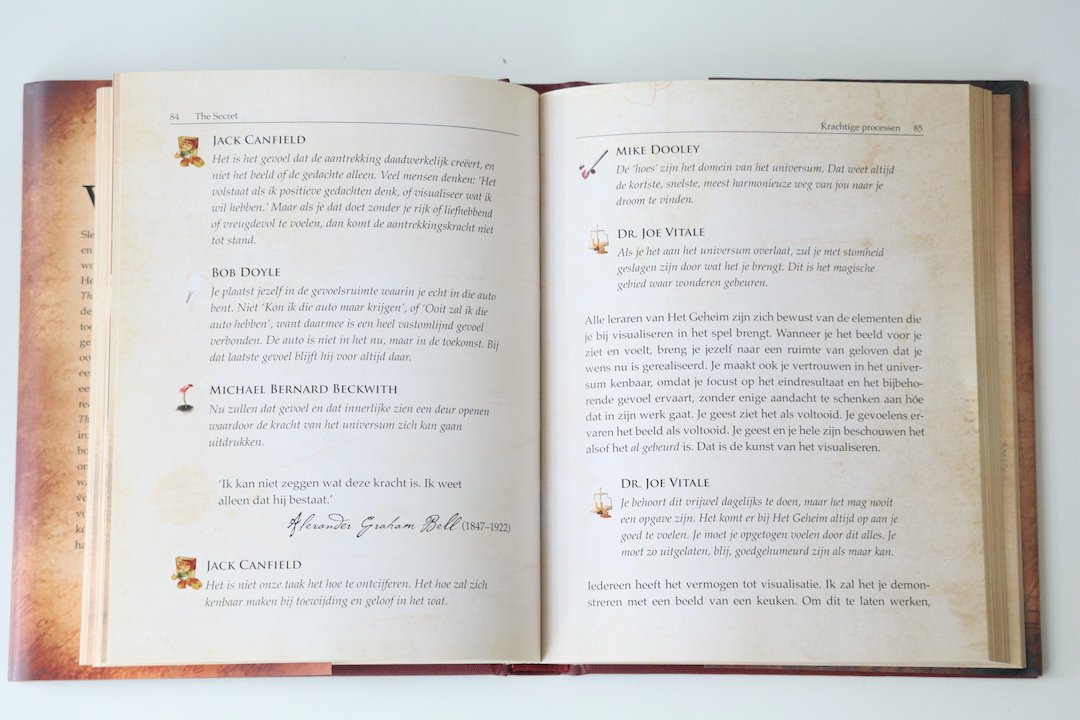 84 The Secret
JACK CANFIELD
Het is het gevoel dat de aantrekking daadwerkelijk creëert, en
niet het beeld of de gedachte alleen. Veel mensen denken: ‘Het
volstaat als ik positieve gedachten denk, of visualiseer wat ik
wil hebben.’ Maar als je dat doet zonder je rijk of liefhebbend
of vreugdevol te voelen, dan komt de aantrekkingskracht niet
tot stand.
BOB DOYLE
Je plaatst jezelf in de gevoelsruimte waarin je echt in die auto
bent. Niet ‘Kon ik die auto maar krijgen’, of ‘Ooit zal ik die
auto hebben’, want daarmee is een heel vastomlijnd gevoel
verbonden. De auto is niet in het nu, maar in de toekomst. Bij
dat laatste gevoel blijft hij voor altijd daar.
MICHAEL BERNARD BECKWITH
Nu zullen dat gevoel en dat innerlijke zien een deur openen
waardoor de kracht van het universum zich kan gaan
uitdrukken.
‘Ik kan niet zeggen wat deze kracht is. Ik weet
alleen dat hij bestaat.’
Alexander Graham Bell (1847–1922)
JACK CANFIELD
Het is niet onze taak het hoe te ontcijferen. Het hoe zal zich
kenbaar maken bij toewijding en geloof in het wat.
Krachtige processen 85
MIKE DOOLEY
De ‘hoes’ zijn het domein van het universum. Dat weet altijd
de kortste, snelste, meest harmonieuze weg van jou naar je
droom te vinden.
DR. JOE VITALE
Als je het aan het universum overlaat, zul je met stomheid
geslagen zijn door wat het je brengt. Dit is het magische
gebied waar wonderen gebeuren.
Alle leraren van Het Geheim zijn zich bewust van de elementen die
je bij visualiseren in het spel brengt. Wanneer je het beeld voor je
ziet en voelt, breng je jezelf naar een ruimte van geloven dat je
wens nu is gerealiseerd. Je maakt ook je vertrouwen in het univer-
sum kenbaar, omdat je focust op het eindresultaat en het bijbeho-
rende gevoel ervaart, zonder enige aandacht te schenken aan hóe
dat in zijn werk gaat. Je geest ziet het als voltooid. Je gevoelens er-
varen het beeld als voltooid. Je geest en je hele zijn beschouwen het
alsof het al gebeurd is. Dat is de kunst van het visualiseren.
DR. JOE VITALE
Je behoort dit vrijwel dagelijks te doen, maar het mag nooit
een opgave zijn. Het komt er bij Het Geheim altijd op aan je
goed te voelen. Je moet je opgetogen voelen door dit alles. Je
moet zo uitgelaten, blij, goedgehumeurd zijn als maar kan.
Iedereen heeft het vermogen tot visualisatie. Ik zal het je demon-
streren met een beeld van een keuken. Om dit te laten werken,